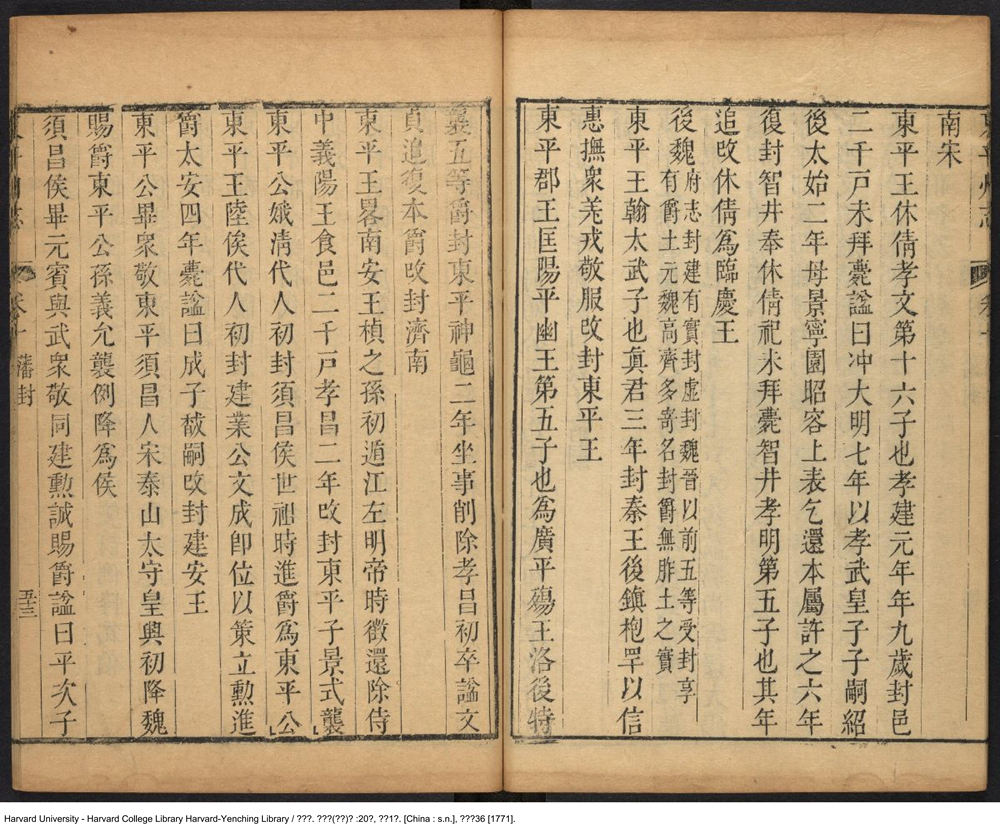 東平州志
南宋
東平王休倩孝文第十六子也孝建元年年九歲封邑
二千戸未拜薨諡曰冲大明七年以孝武皇子子嗣紹
後太始二年母景寧園昭容上表乞還本屬許之六年
復封智井奉休倩祀未拜薨智井孝明第五子也其年
追改休倩爲臨慶王
後魏府志封建有實封虛封魏晉以前五等受封享
有爵土元魏高齊多寄名封爵無胙土之實
東平王翰太武子也真君三年封秦王後鎮枹罕以信
惠撫衆羌戎敬服改封東平王
東平郡王匡陽平幽王第五子也爲廣平殤王洛後特
襲五等爵封東平神龜二年坐事削除孝昌初卒諡文
貞追復本爵改封濟南
東平王畧南安王楨之孫初遁江左明帝時徵還除侍
中義陽王食邑二千戸孝昌二年改封東平子景式襲
東平公娥清代人初封須昌侯世祖時進爵爲東平公
東平王陸俟代人初封建業公文成卽位以策立勲進
爵太安四年薨諡曰成子馛嗣改封建安王
東平公畢衆敬東平須昌人宋泰山太守皇興初降魏
賜爵東平公孫義允襲例降爲侯
須昌侯畢元賓與武衆敬同建勲誠賜爵諡曰平次子
藩封
五十三
Harvard University - Harvard College Library Harvard-Yenching Library / ???. ???(??)? :20?, ??1?. [China : s.n.], ???36 [1771].